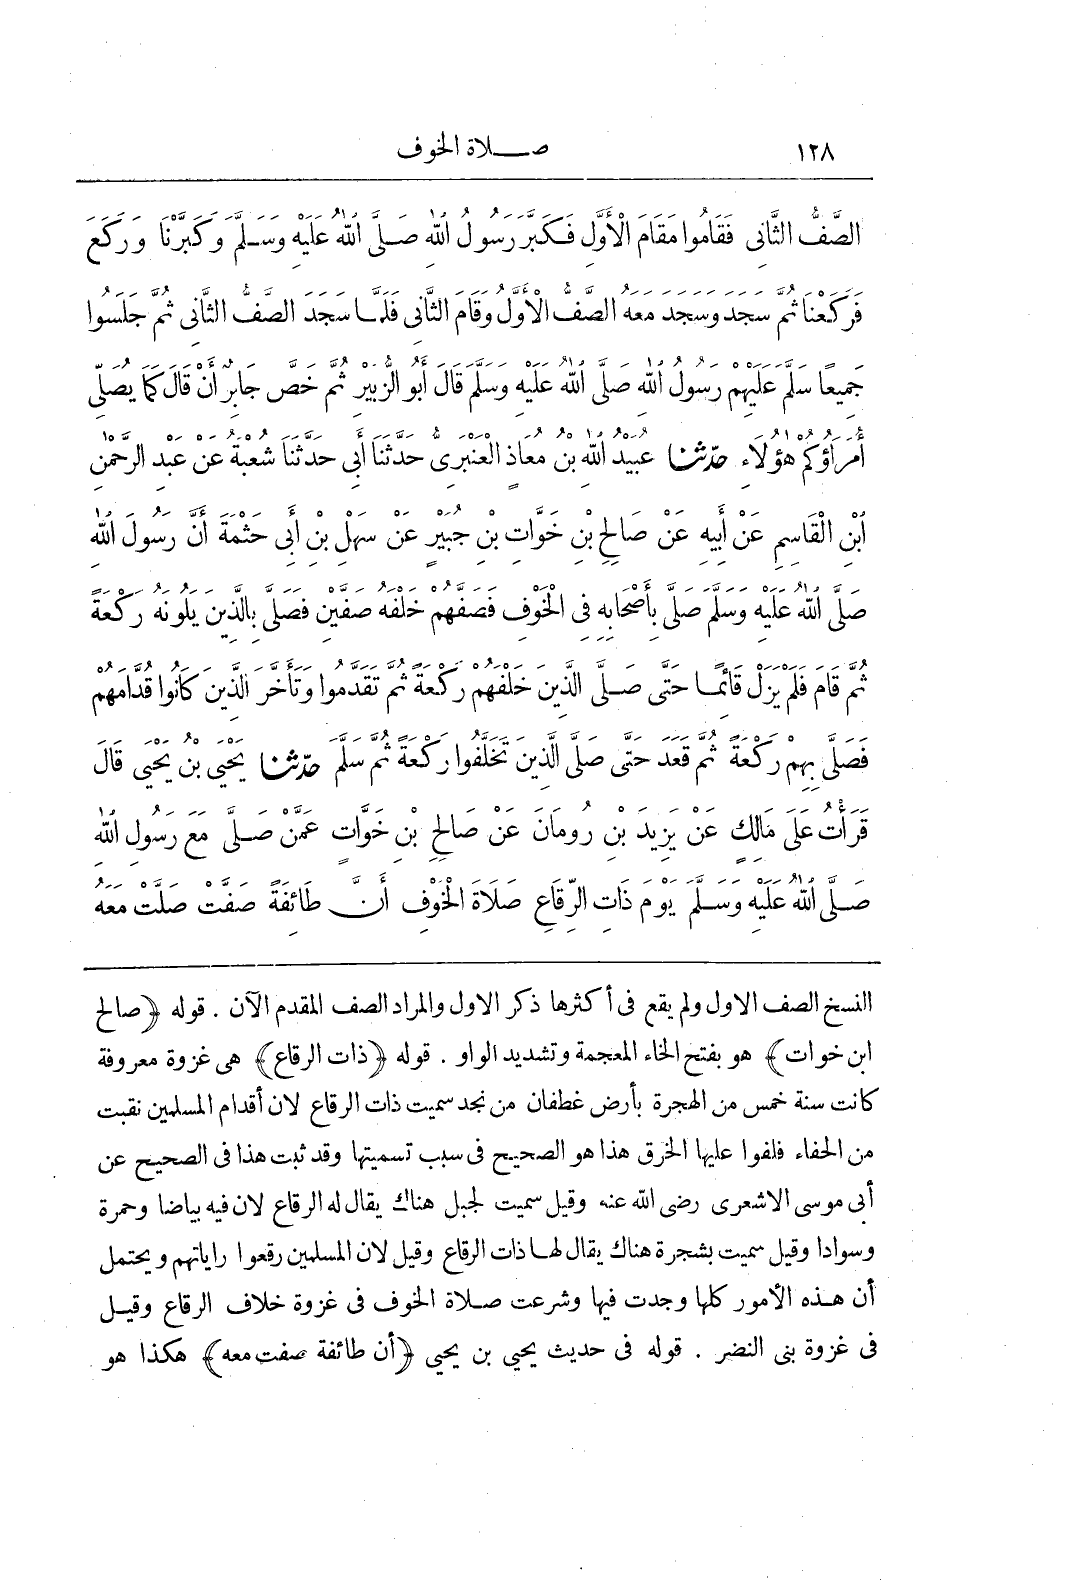 ١٢٨ صلاة الخوف
الصَّفُّ الثَّانِى فَقَامُوا مَقَامَ الْأَوَّلِ فَكَبَّرَ رَسُولُ اللهِ صَلَّى اللهُ عَلَيْهِ وَسَلَّمَ وَكَبَّرْنَا وَرَكَعَ
فَرَكَعْنَا ثُمَّ سَجَدَ وَسَجَدَ مَعَهُ الصَّفُّ الْأَوَّلُ وَقَامَ الثَّانِى فَلَمَّا سَجَدَ الصَّفُّ الثَّانِى ثُمَّ جَلَسُوا
جَمِيعًا سَلَّمَ عَلَيْهِمْ رَسُولُ اللهِ صَلَّى اللهُ عَلَيْهِ وَسَلَّمَ قَالَ أَبُو الزُّبَيْرِ ثُمَّ خَصَّ جَابِرٌ أَنْ قَالَ كَمَا يُصَلِّى
أُمَرَاؤُكُمْ هَؤُلَاءِ حدّثنا عُبَيْدُ اللهِ بْنُ مُعَاذٍ الْعَنْبَرِىُّ حَدَّثَنَا أَبِى حَدَّثَنَا شُعْبَةُ عَنْ عَبْدِ الرَّحْمٰنِ
ابْنِ الْقَاسِمِ عَنْ أَبِيهِ عَنْ صَالِحِ بْنِ خَوَّاتِ بْنِ جُبَيْرٍ عَنْ سَهْلِ بْنِ أَبِى حَثْمَةَ أَنَّ رَسُولَ اللهِ
صَلَّى اللهُ عَلَيْهِ وَسَلَّمَ صَلَّى بِأَصْحَابِهِ فِى الْخَوْفِ فَصَفَّهُمْ خَلْفَهُ صَفَّيْنِ فَصَلَّى بِالَّذِينَ يَلُونَهُ رَكْعَةً
ثُمَّ قَامَ فَلَمْ يَزَلْ قَائِمًا حَتَّى صَلَّى الَّذِينَ خَلْفَهُمْ رَكْعَةً ثُمَّ تَقَدَّمُوا وَتَأَخَّرَ الَّذِينَ كَانُوا قُدَّامَهُمْ
فَصَلَّى بِهِمْ رَكْعَةً ثُمَّ قَعَدَ حَتَّى صَلَّى الَّذِينَ تَخَلَّفُوا رَكْعَةً ثُمَّ سَلَّمَ حدّثنا يَحْيَى بْنُ يَحْيَى قَالَ
قَرَأْتُ عَلَى مَالِكٍ عَنْ يَزِيدَ بْنِ رُومَانَ عَنْ صَالِحِ بْنِ خَوَّاتٍ عَمَّنْ صَلَّى مَعَ رَسُولِ اللهِ
صَلَّى اللهُ عَلَيْهِ وَسَلَّمَ يَوْمَ ذَاتِ الرِّقَاعِ صَلَاةَ الْخَوْفِ أَنَّ طَائِفَةً صَفَّتْ صَلَّتْ مَعَهُ
النسخ الصف الاول ولم يقع فى أكثرها ذكر الاول والمراد الصف المقدم الآن . قوله ﴿صالح
ابن خوات﴾ هو بفتح الخاء المعجمة وتشديد الواو . قوله ﴿ذات الرقاع﴾ هى غزوة معروفة
كانت سنة خمس من الهجرة بأرض غطفان من نجد سميت ذات الرقاع لان أقدام المسلمين نقبت
من الحفاء فلفوا عليها الخرق هذا هو الصحيح فى سبب تسميتها وقد ثبت هذا فى الصحيح عن
أبى موسى الاشعرى رضى الله عنه وقيل سميت لجبل هناك يقال له الرقاع لان فيه بياضا وحمرة
وسوادا وقيل سميت بشجرة هناك يقال لها ذات الرقاع وقيل لان المسلمين رقعوا راياتهم ويحتمل
أن هذه الأمور كلها وجدت فيها وشرعت صلاة الخوف فى غزوة خلاف الرقاع وقيل
فى غزوة بنى النضر . قوله فى حديث يحيي بن يحيي ﴿أن طائفة صفت معه﴾ هكذا هو